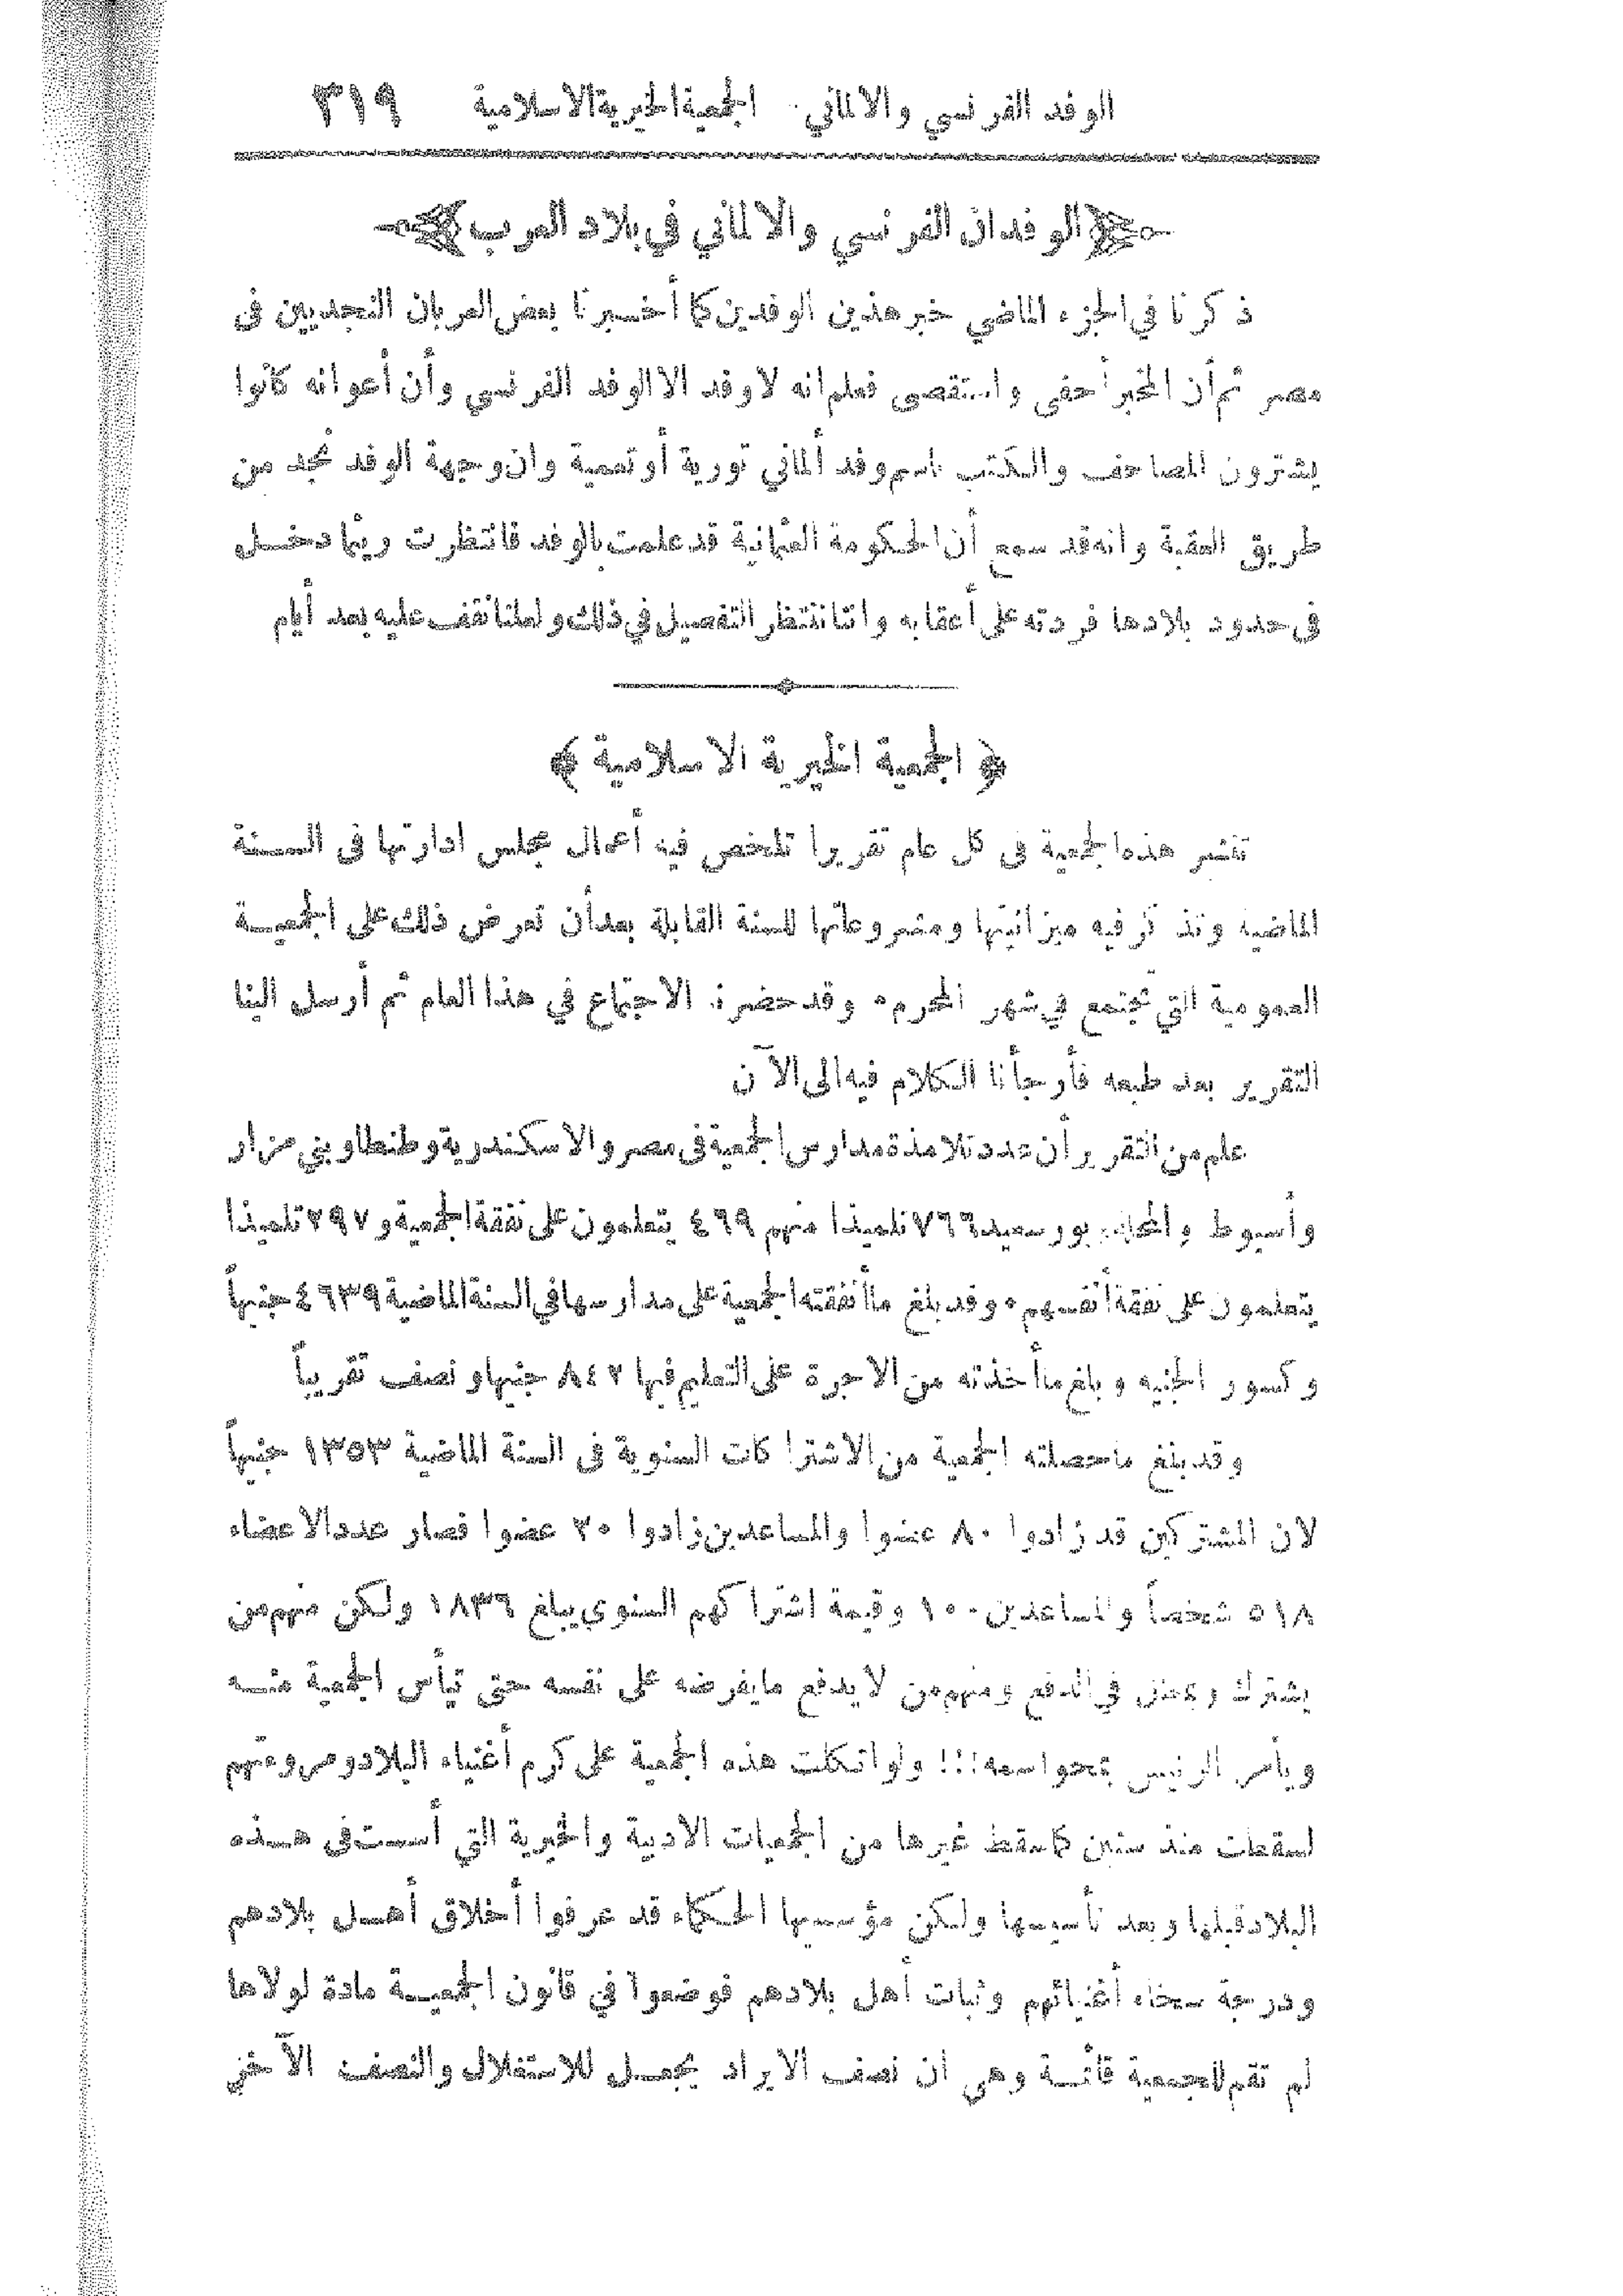 الوفد الفرنسي والالماني. الجمعية الخيرية الاسلامية ٣١٩
﴿ الوفدان الفرنسي والالماني في بلاد العرب ﴾
ذكرنا في الجزء الماضي خبر هذين الوفدين كما أخبرنا بعض العربان النجديين فى
مصر ثم أن المخبر أحفى واستقصى فعلم انه لا وفد الا الوفد الفرنسي وأن أعوانه كانوا
يشترون المصاحف والكتب باسم وفد ألماني تورية أو تعمية وان وجهة الوفد نجد من
طريق العقبة وانه قد سمع أن الحكومة العثمانية قد علمت بالوفد فانتظرت ريثما دخل
فى حدود بلادها فردته على أعقابه واننا ننتظر التفصيل في ذلك ولعلنا نقف عليه بعد أيام
﴿ الجمعية الخيرية الاسلامية ﴾
تنشر هذه الجمعية فى كل عام تقريرا تلخص فيه أعمال مجلس ادارتها فى السنة
الماضية وتذكر فيه ميزانيتها ومشروعاتها للسنة القابلة بعد أن تعرض ذلك على الجمعية
العمومية التي تجتمع في شهر المحرم ٠ وقد حضرنا الاجتماع في هذا العام ثم أرسل الينا
التقرير بعد طبعه فأرجأنا الكلام فيه الى الآن
علم من التقرير أن عدد تلامذة مدارس الجمعية فى مصر والاسكندرية وطنطا وبني مزار
وأسيوط والمحلة وبور سعيد ٧٦٦ تلميذا منهم ٤٦٩ يتعلمون على نفقة الجمعية و ٢٩٧ تلميذا
يتعلمون على نفقة أنفسهم ٠ وقد بلغ ما أنفقته الجمعية على مدارسها في السنة الماضية ٤٦٣٩ جنيهاً
وكسور الجنيه وبلغ ما أخذته من الاجرة على التعليم فيها ٨٤٢ جنيها ونصف تقريباً
وقد بلغ ما حصلته الجمعية من الاشتراكات السنوية فى السنة الماضية ١٣٥٣ جنيهاً
لان المشتركين قد زادوا ٨٠ عضوا والمساعدين زادوا ٢٠ عضوا فصار عدد الاعضاء
٥١٨ شخصاً والمساعدين ١٠٠ وقيمة اشتراكهم السنوي يبلغ ١٨٣٦ ولكن منهم من
يشترك ويمطل في الدفع ومنهم من لا يدفع ما يفرضه على نفسه حتى تيأس الجمعية منه
ويأمر الرئيس بمحو اسمه!!! ولو اتكلت هذه الجمعية على كرم أغنياء البلاد ومروءتهم
لسقطت منذ سنين كما سقط غيرها من الجمعيات الادبية والخيرية التي أسست فى هذه
البلاد قبلها وبعد تأسيسها ولكن مؤسسيها الحكماء قد عرفوا أخلاق أهل بلادهم
ودرجة سخاء أغنيائهم وثبات أهل بلادهم فوضعوا في قانون الجمعية مادة لولاها
لم تقم للجمعية قائمة وهي ان نصف الايراد يجعل للاستغلال والنصف الآخر